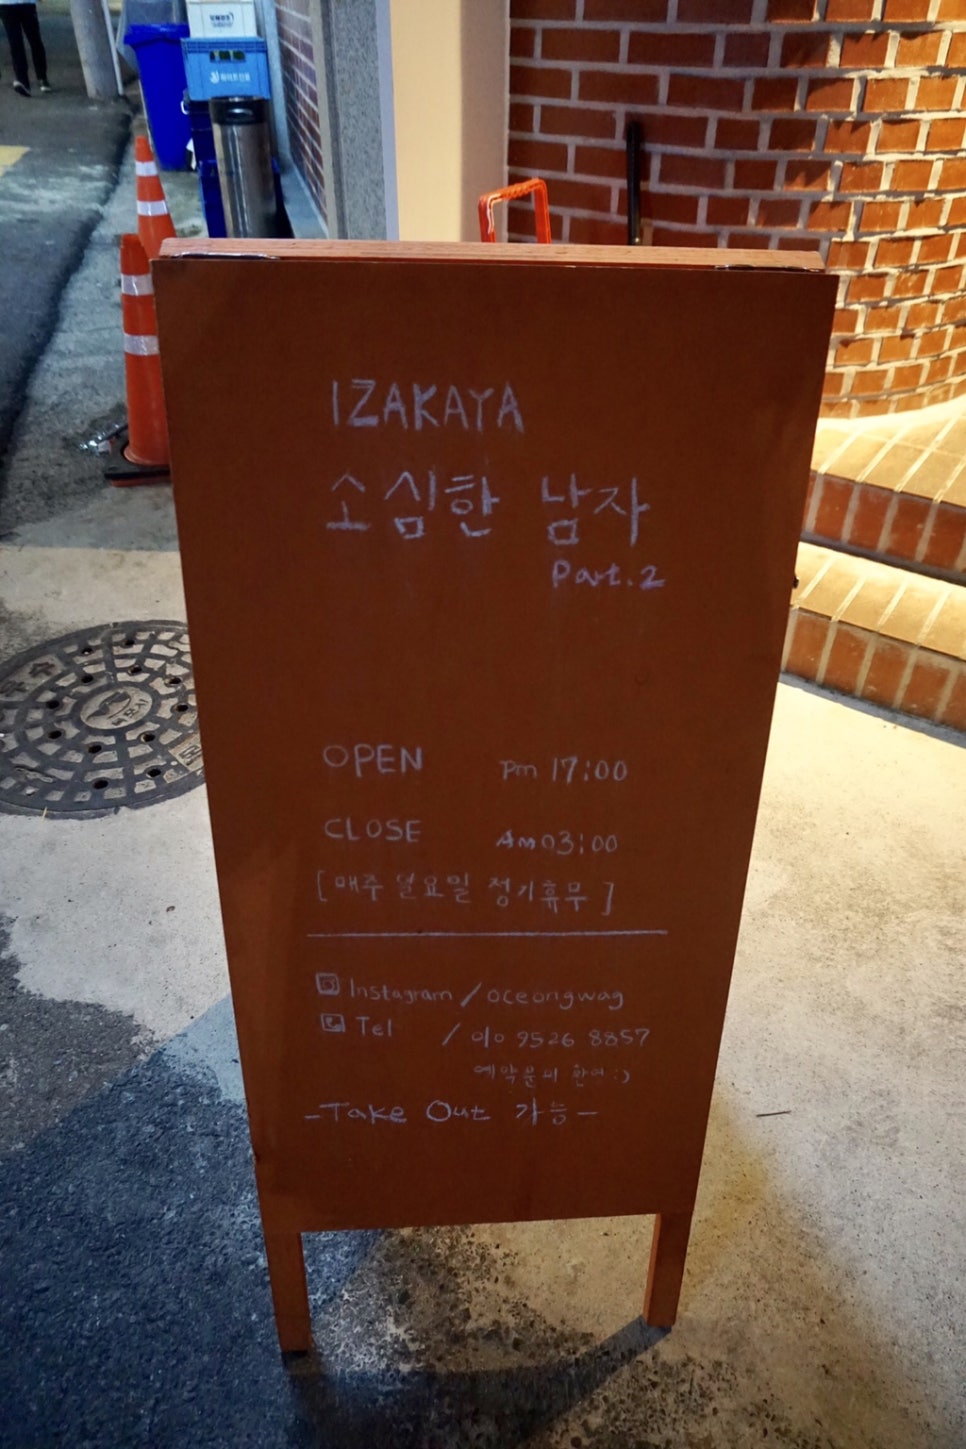 IZAKAYA
소심한 남자
Part.2
OPEN pm 17:00
CLOSE AM 03:00
[매주 일요일 정기휴무]
Instagram / oceongwag
Tel / 010 9526 8857
예약문의 환영 :)
-Take Out 가능-